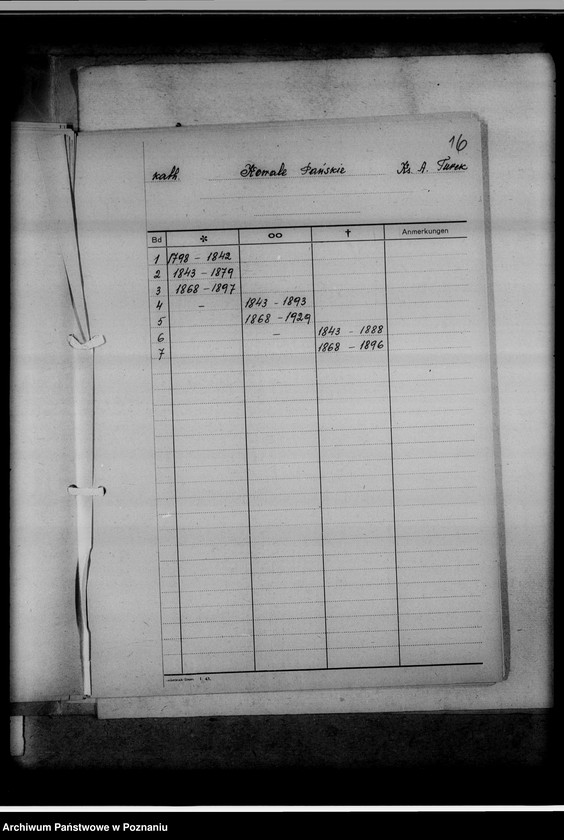 16
kath. Kowale Pańskie Ks. A. Turek
Bd * ∞ † Anmerkungen
1 1798 - 1842
2 1843 - 1879
3 1868 - 1897
4 - 1843 - 1893
5 1868 - 1929
6 - 1843 - 1888
7 1868 - 1896
1. 41.
Archiwum Państwowe w Poznaniu